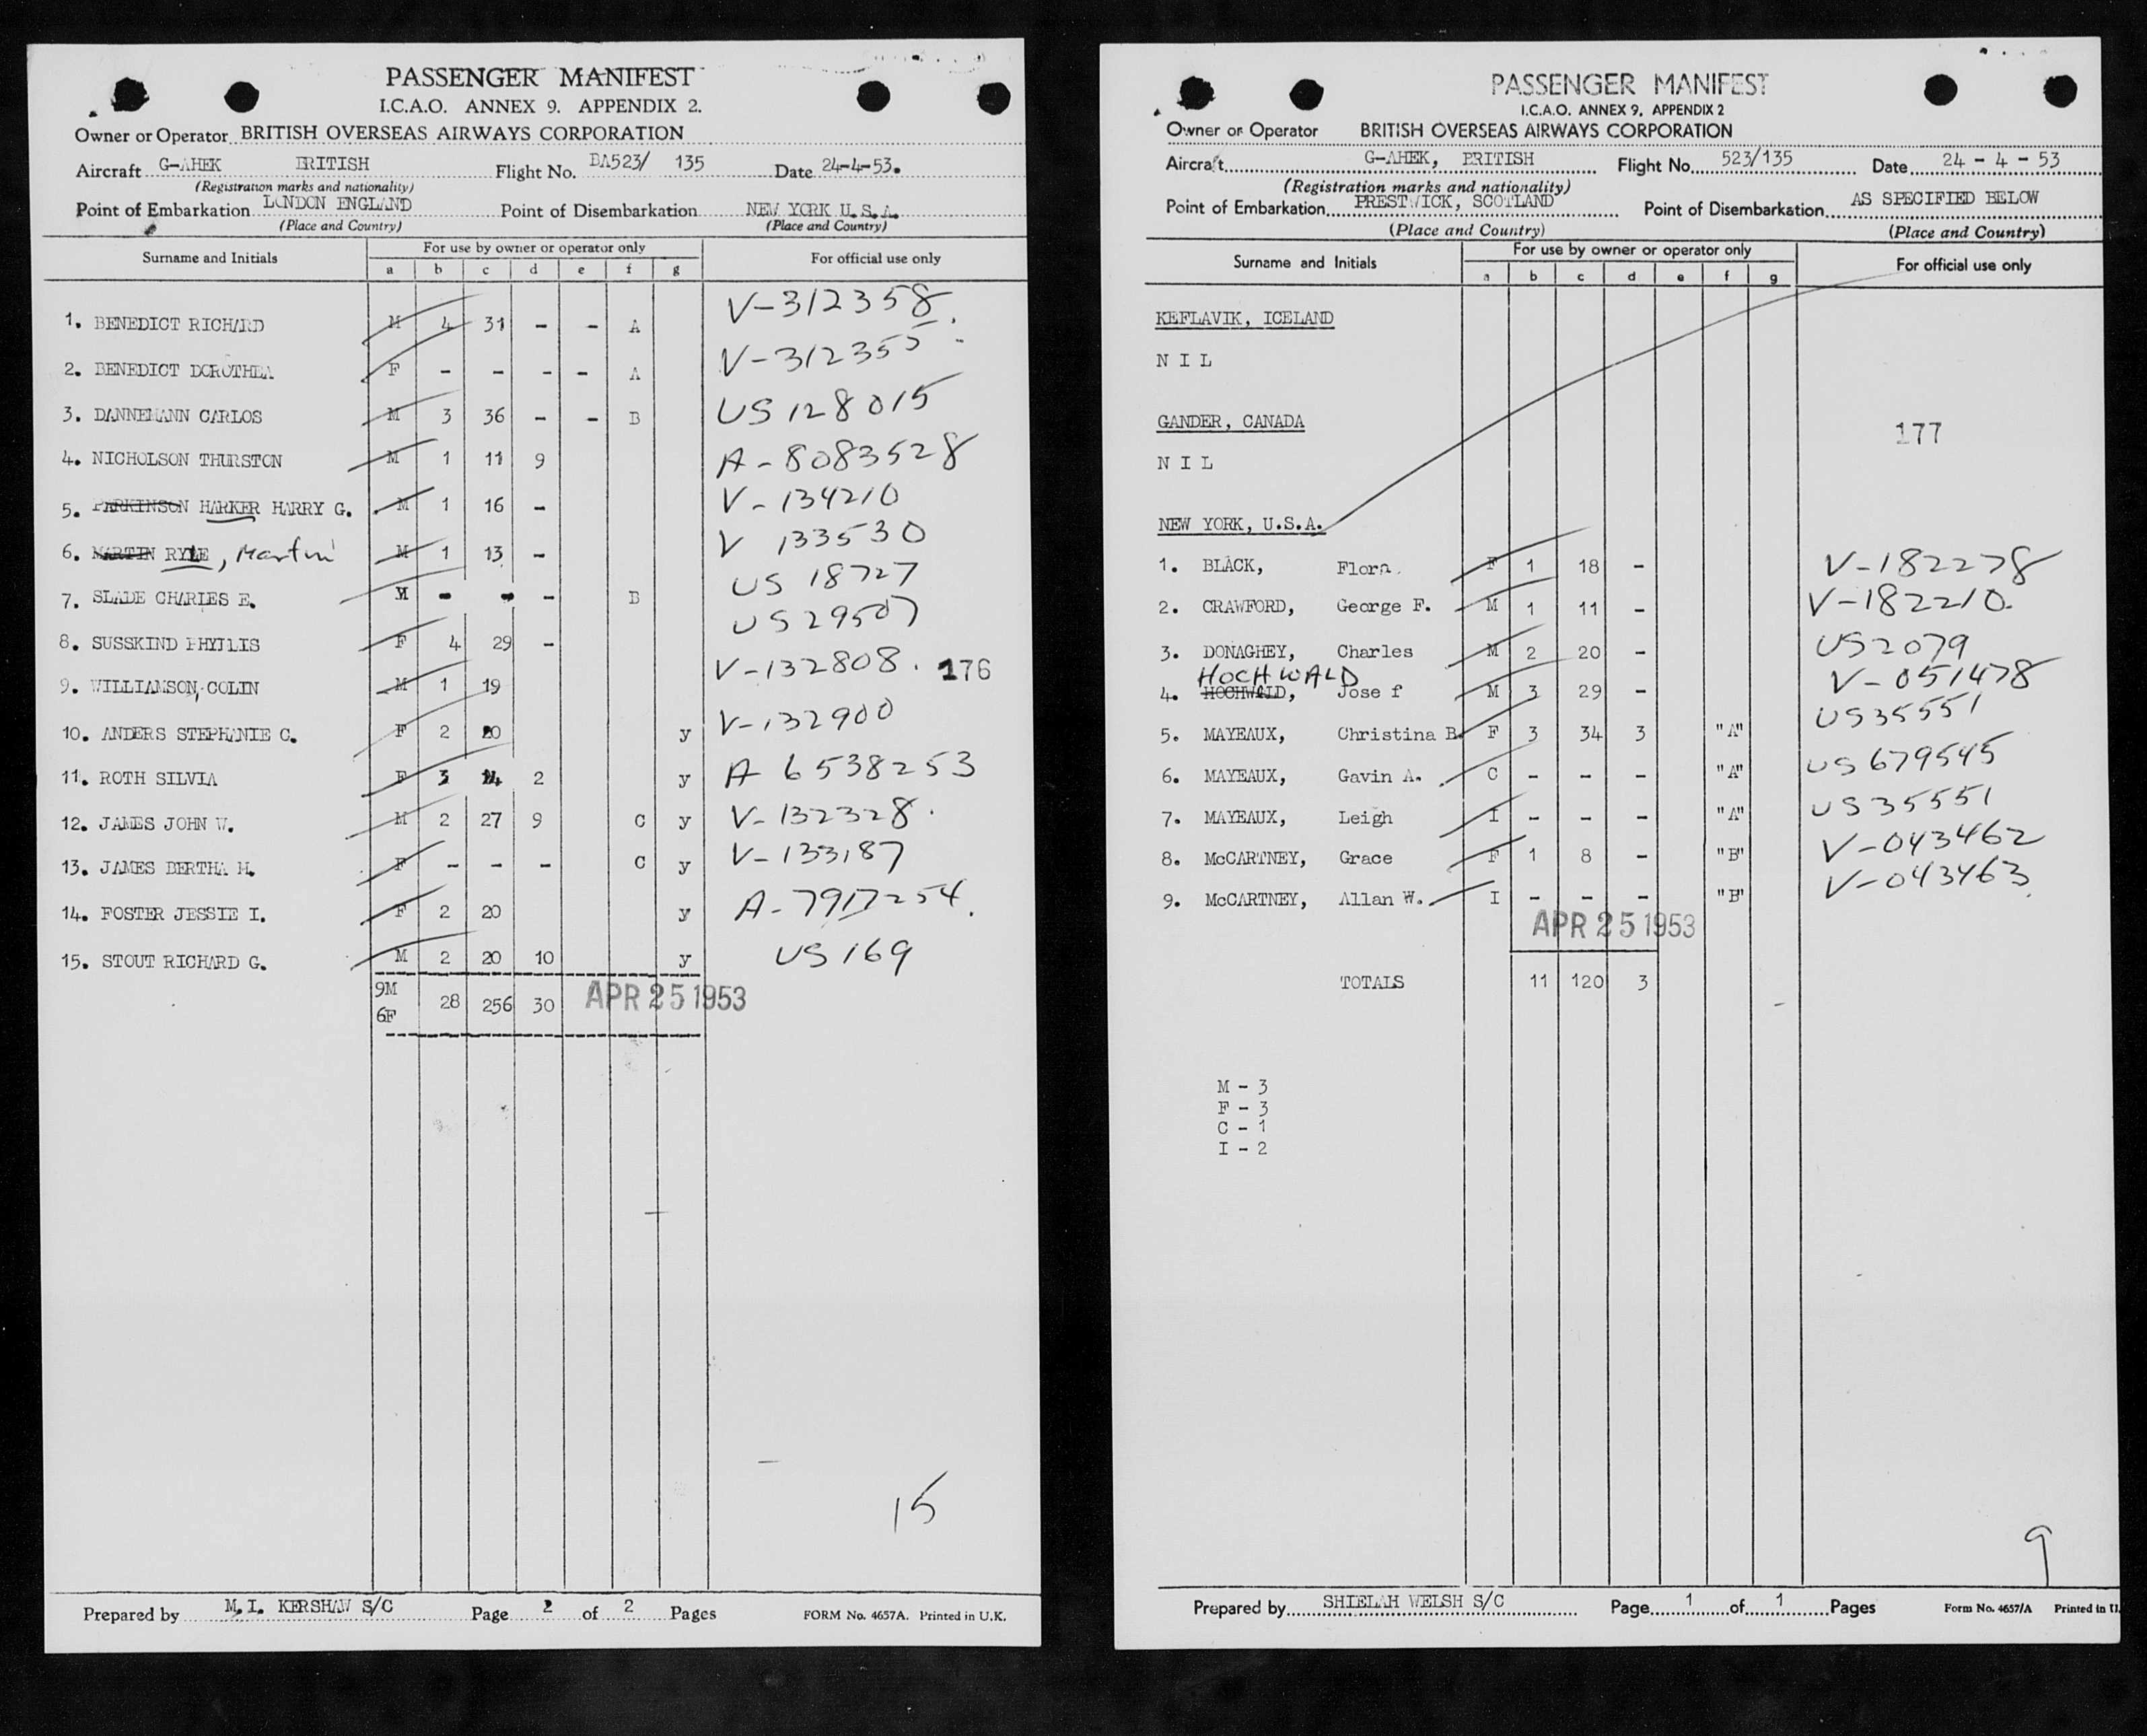 PASSENGER MANIFEST
I.C.A.O. ANNEX 9. APPENDIX 2.
Owner or Operator BRITISH OVERSEAS AIRWAYS CORPORATION
Aircraft G-AHEK BRITISH Flight No. BA523/ 135 Date 24-4-53.
(Registration marks and nationality)
Point of Embarkation LONDON ENGLAND Point of Disembarkation NEW YORK U.S.A.
(Place and Country) (Place and Country)
Surname and Initials For use by owner or operator only For official use only
a b c d e f g
1. BENEDICT RICHARD M 4 31 - - A V-312358.
2. BENEDICT DOROTHEA F - - - - A V-312355
3. DANNEMANN CARLOS M 3 36 - - B US 128015
4. NICHOLSON THURSTON M 1 11 9 A-8083528
5. PARKINSON HARKER HARRY G. M 1 16 - V-134210
6. MARTIN RYLE, Martin M 1 13 - V 133530
7. SLADE CHARLES E. M - - - B US 18727
8. SUSSKIND PHYLLIS F 4 29 - US 29507
9. WILLIAMSON, COLIN M 1 19 V-132808. 176
10. ANDERS STEPHANIE C. F 2 20 y V-132900
11. ROTH SILVIA F 3 24 2 y A 6538253
12. JAMES JOHN W. M 2 27 9 C y V-132328.
13. JAMES BERTHA M. F - - - C y V-133187
14. FOSTER JESSIE I. F 2 20 y A-7917254.
15. STOUT RICHARD G. M 2 20 10 y US 169
9M
6F 28 256 30 APR 25 1953
15
Prepared by M.I. KERSHAW S/C Page 2 of 2 Pages FORM No. 4657A. Printed in U.K.
PASSENGER MANIFEST
I.C.A.O. ANNEX 9, APPENDIX 2
Owner or Operator BRITISH OVERSEAS AIRWAYS CORPORATION
Aircraft G-AHEK, BRITISH Flight No. 523/135 Date 24 - 4 - 53
(Registration marks and nationality)
Point of Embarkation PRESTWICK, SCOTLAND Point of Disembarkation AS SPECIFIED BELOW
(Place and Country) (Place and Country)
Surname and Initials For use by owner or operator only For official use only
a b c d e f g
KEFLAVIK, ICELAND
N I L
GANDER, CANADA
177
N I L
NEW YORK, U.S.A.
1. BLACK, Flora. F 1 18 - V-182278
2. CRAWFORD, George F. M 1 11 - V-182210.
3. DONAGHEY, Charles M 2 20 - US2079
HOCHWALD
4. HOCHWALD, Jose f M 3 29 - V-051478
5. MAYEAUX, Christina B. F 3 34 3 "A" US35551
6. MAYEAUX, Gavin A. C - - - "A" US679545
7. MAYEAUX, Leigh I - - - "A" US35551
8. McCARTNEY, Grace F 1 8 - "B" V-043462
9. McCARTNEY, Allan W. I - - - "B" V-043463
APR 25 1953
TOTALS 11 120 3
M - 3
F - 3
C - 1
I - 2
9
Prepared by SHIELAH WELSH S/C Page 1 of 1 Pages Form No. 4657/A Printed in U.